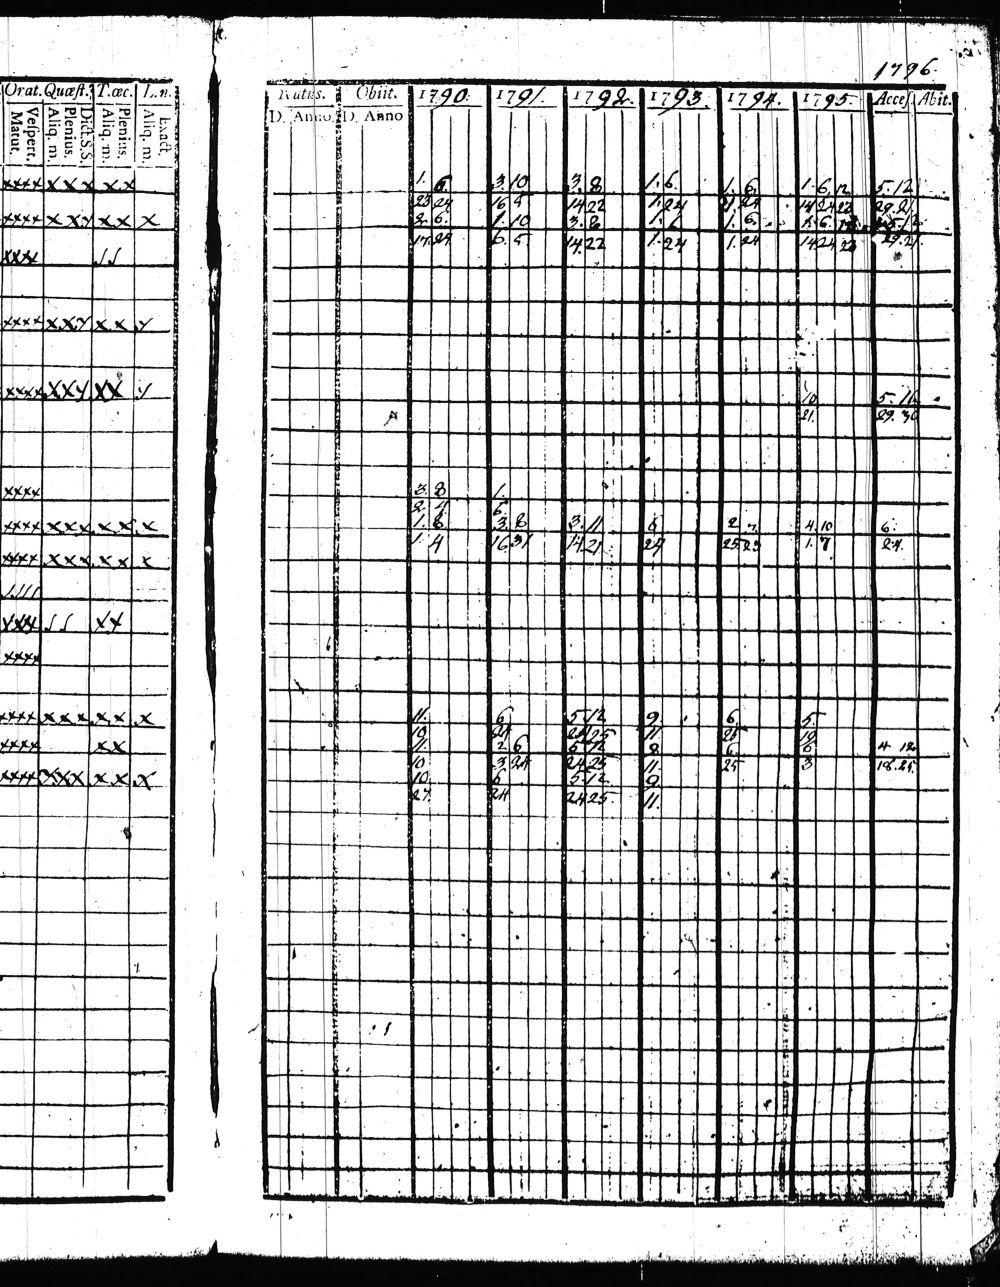 1796.
Orat. Quæst. T. œc. L. n.
Vespert. Matut. Dict. S.S. Plenius. Aliq. m. Plenius. Aliq. m. Exact. Aliq. m.
Natus. Obiit. 1790. 1791. 1792. 1793. 1794. 1795. Access. Abit.
D. Anno. D. Anno
xxxx x x x x x
1. 6. 3. 10 3. 8 1. 6. 1. 6. 1. 6. 12 5. 12
23 24 16 5 14 22 1. 24 1. 24 14 24 22 29. 21.
xxxx x x y x x x
2. 6. 1. 10 3. 8 1. 1. 6. 1. 6.
17. 24 6. 5 14. 22 1. 24 1. 24 14 24 22 29. 21.
xxxx
xxxx x x y x x y
xxxx x x y x x y
10 5. 11.
21. 29. 30
xxxx
3. 8 1.
2. 4 6.
xxxx x x x x x x
1. 6 3. 8 3. 11 6 2 4. 10 6.
1. 4 16 31 14. 21 24 25. 23 1. 7 24.
xxxx x x x x x x
xxxx
xxxx
xxxx x x x x x x
11. 6 5. 12 9. 6. 5.
10. 24 24 25 11. 25 19
xxxx x x
11. 2. 6 5. 12 8. 6. 6 4 12
10 3. 24 24. 25 11. 25 3 18. 25.
xxxx x x x x x x
10. 6 5. 12 9.
27. 24 24 25. 11.